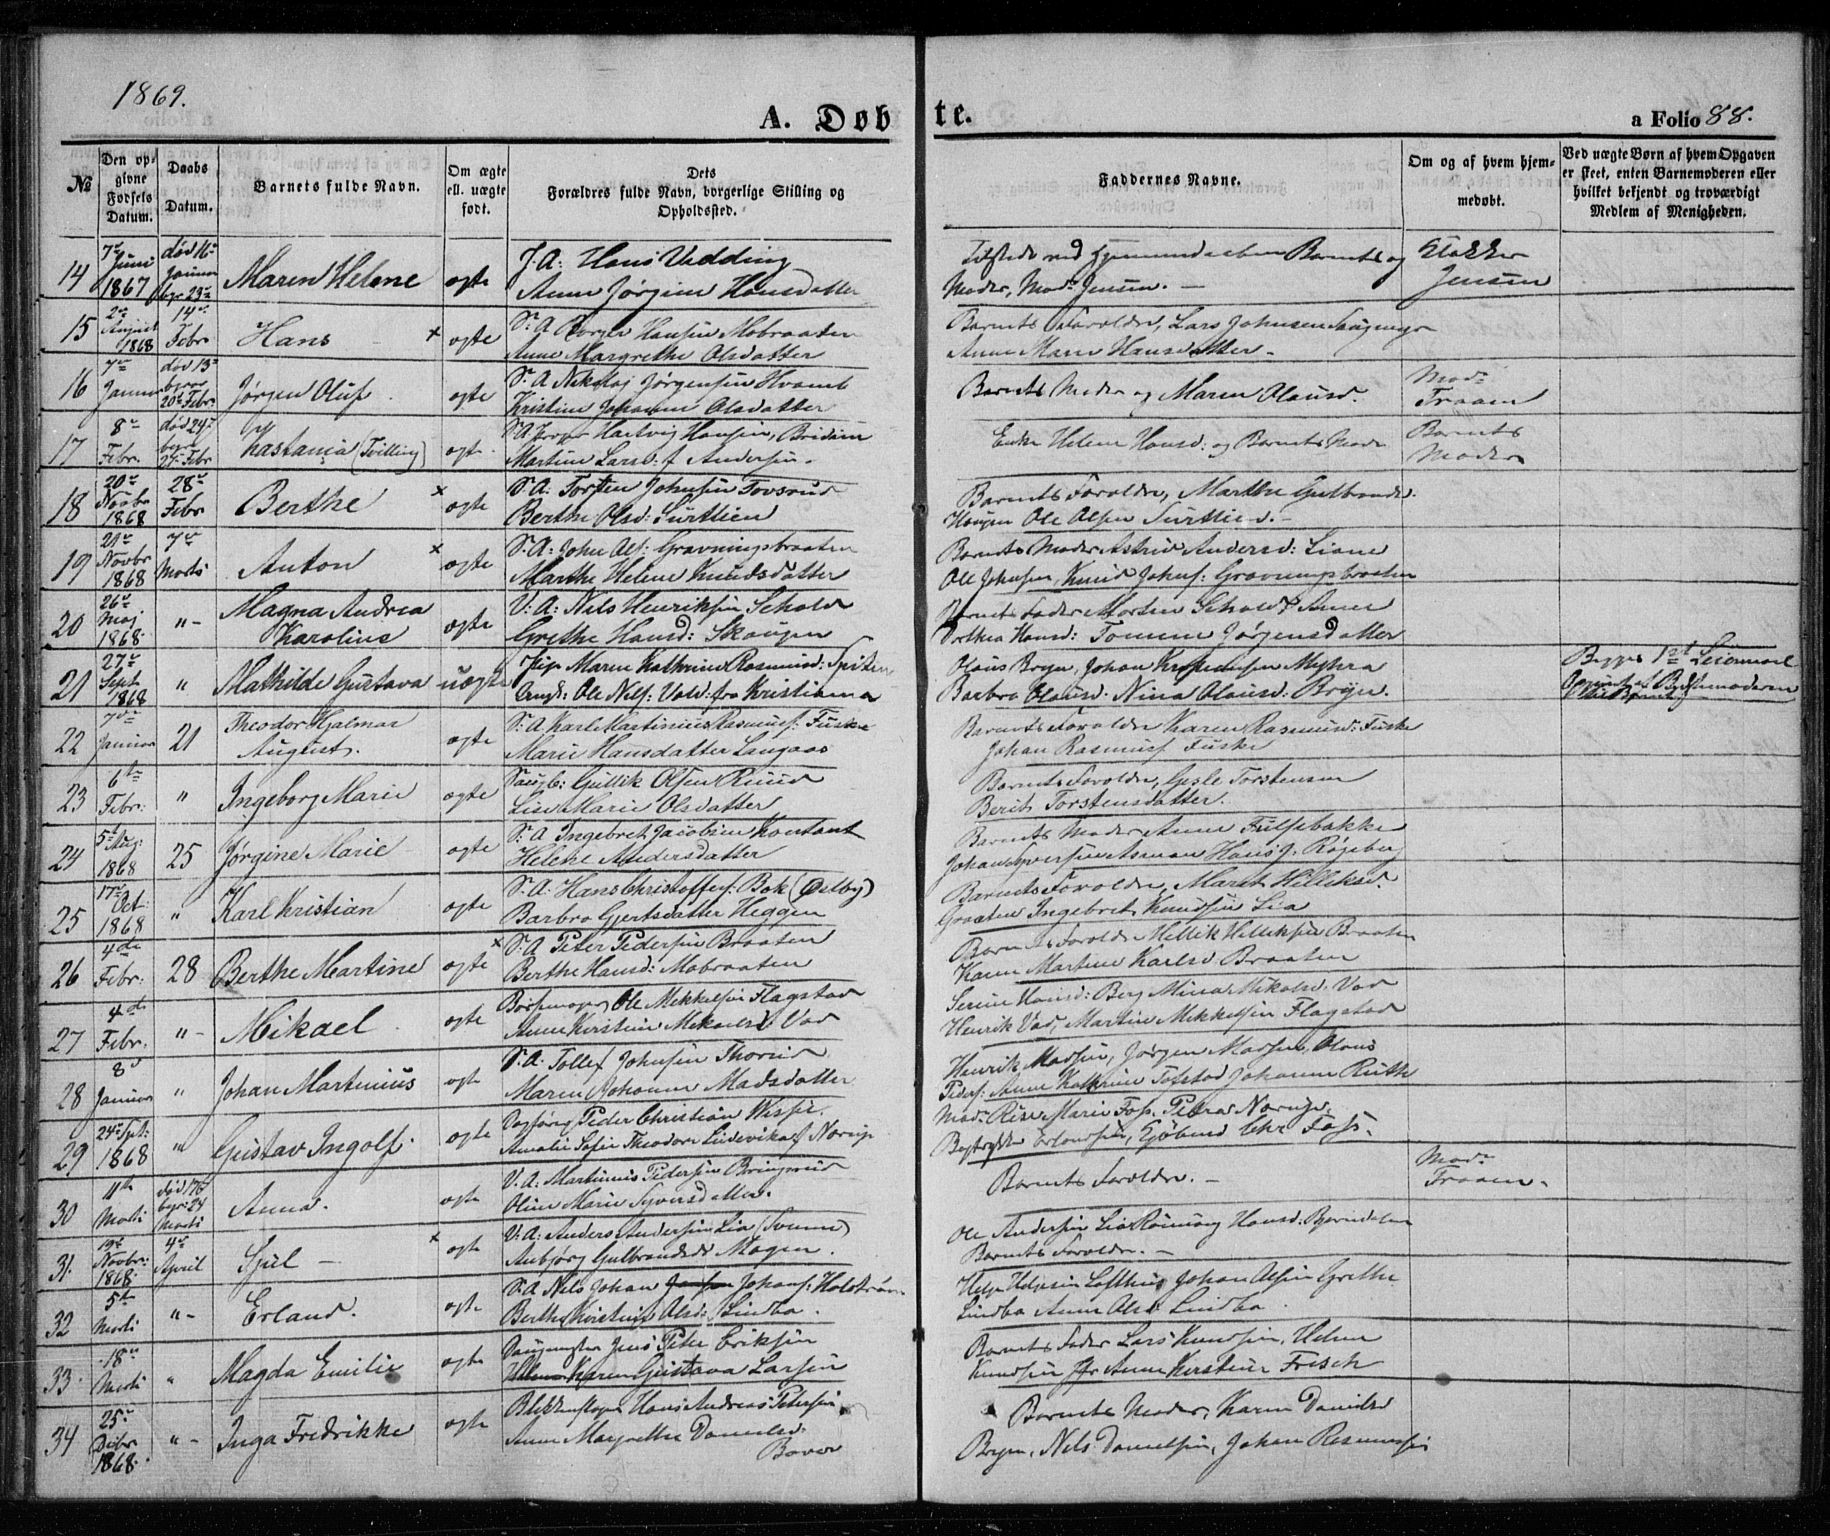 1869.
A. Døbte.
a Folio 88.
№
Den opgivne Fødsels Datum.
Daabs Datum.
Barnets fulde Navn.
Om ægte ell. uægte født.
Dets Forældres fulde Navn, borgerlige Stilling og Opholdssted.
Faddernes Navne.
Om og af hvem hjemmedøbt.
Ved uægte Børn af hvem Opgaven er skeet, enten Barnemoderen eller hvilket bekjendt og troværdigt Medlem af Menigheden.
14 7de Juni 1867 død 16de Januar begr 23de Maren Helene ægte J. A: Hans Vedding
Anne Jørgine Hansdatter
Tilstede ved Hjemmedaaben Barnets
Moder, Mad: Jensen. — Klokker Jensen
15 2de August 1868 14de Febr Hans x ægte S. A Hansen Mobraaten
Anne Margrethe Olsdatter
Barnets Forældre, Lars Johnsen
Anne Marie Hansdatter
16 7de Januar død 13de begr 20de Febr Jørgen Oluf ægte S. A Nikolaj Jørgensen Hvamb
Kristine Johanne Olsdatter
Barnets Moder og Maren Olausd. Mad: Traaen
17 8de Febr. død 24de begr 27de Febr Kastania (Tvilling) ægte Hartvig Hansen,
Martine Larsd: f Andersen
Enke Helene Hansd: og Barnets Moder Barnets Moder
18 20de Novbr 1868 28de Febr Berthe x ægte S. A: Torsten Johnsen Tovsrud
Berthe Olsd: Surtlien
Barnets Forældre, Marthe Gulbrandsd.
Haugen Ole Olsen Surtlien
19 21de Novbr 1868 7de Marts Anton x ægte S. A: John Ols: Gravningsbraaten
Marthe Helene Knudsdatter
Barnets Moder Astrid Andersd: Liane
Ole Johnsen, Knud Johns: Gravningsbraaten
20 26de Maj 1868 "- Magna Andrea Karoline ægte V. A: Nils Henriksen Schold
Grethe Hansd: Skougen
Barnets Fader Morten Schold Anne
Dorthea Hansd: Tomine Jørgensdatter
21 27de Sept 1868 " Mathilde Gustava uægte Pige Maren Kathrine Rasmusd:
Ungk: Ole Nils: Vold: fra Kristiania
Olaus Bryn, Johan Kristensen Myhra
Barbro Olausd: Nina Olausd: Bryn.
Begges 1ste Leiermaal
22 7de Januar 21 Theodor Hjalmar August. ægte S. A Karl Martinius Rasmus: Fuske
Marie Hansdatter Langaas
Barnets Forældre Karen Rasmusd: Fuske
Johan Rasmus: Fuske
23 6te Febr: " Ingeborg Marie ægte Gullik Olsen Ruud
Lise Marie Olsdatter
Barnets Forældre, Gisle Torstensen
Berit Torstensdatter.
24 5te Aug: 1868 25 Jørgine Marie ægte S. A Ingebret Jacobsen Kontant
Helene Andersdatter
Barnets Moder Anne Fulsebakke
Johan Hans J. Røgeberg
25 17de Oct. 1868 " Karl Kristian ægte S. A. Hans Christoffers: Bok (Østby)
Barbro Gjertsdatter Heggen
Barnets Forældre, Marit Helliksd.
Graaten Ingebret Knudsen Lia
26 4de Febr. 28 Berthe Martine ægte x S. A Peter Pedersen Braaten
Berthe Hansd: Mobraaten
Barnets Forældre Hellik Helliksen Braaten
Karen Martine Karlsd Braaten
27 4de Febr. "- Mikael ægte Bøssemager Ole Mekkelsen Flagstad
Anne Kirstine Vad
Serine Hansd: Berg Mina Vad
Henrik Vad, Martin Mikkelsen Flagstad
28 8de Januar " Johan Martinius ægte S. A. Tollef Johnsen Thorud
Maren Johanne Madsdatter
Henrik Madsen, Jørgen Madsen, Olaus
Peders: Anne Kathrine Tofstad Johanne Ruth
29 24de Spt: 1868 " Gustav Ingolf. ægte Peder Christian
Amalie Sofie Theodora Ludovika f Norup
Mad: Marie Foss, Petra Norup,
Bogtrykker Chr Foss.
30 11te Marts død 17de begr: 24 Marts Anna. ægte V. A: Martinius Pedersen Bringsrud
Oline Marie Syversdatter.
Barnets Forældre. — Mad: Traaen.
31. 19de Novbr: 1868 4de April Gjul — x ægte V. A: Anders Andersen Lia (Tomme)
Aubjørg Gulbrandsd: Mogen.
Ole Andersen Lia Rønnoug Hansd: Bjørndalen
Barnets Forældre. —
32 5te Marts "- Erland. ægte S. A Nils Johan Johans: Holstrøm
Berthe Kirstine Olsd: Lindbo.
Helge Helgesen Lofthus Johan Olsen Grethe
Lindbo Anne Olsd: Lindbo.
33 18de Marts " Magda Emilie ægte Jens Peter Eriksen
Karen Gustava Larsen
Barnets Fader Lars Knudsen, Helene
Knudsen Anne Kirstine Frisch
34 25de Debr 1868 "- Inga Fredrikke ægte Blikkenslager Hans Andreas Petersen
Anne Margrethe Danielsd: Baver
Barnets Moder, Karen Danielsd
Bryn, Nils Danielsen, Johan Rasmussen